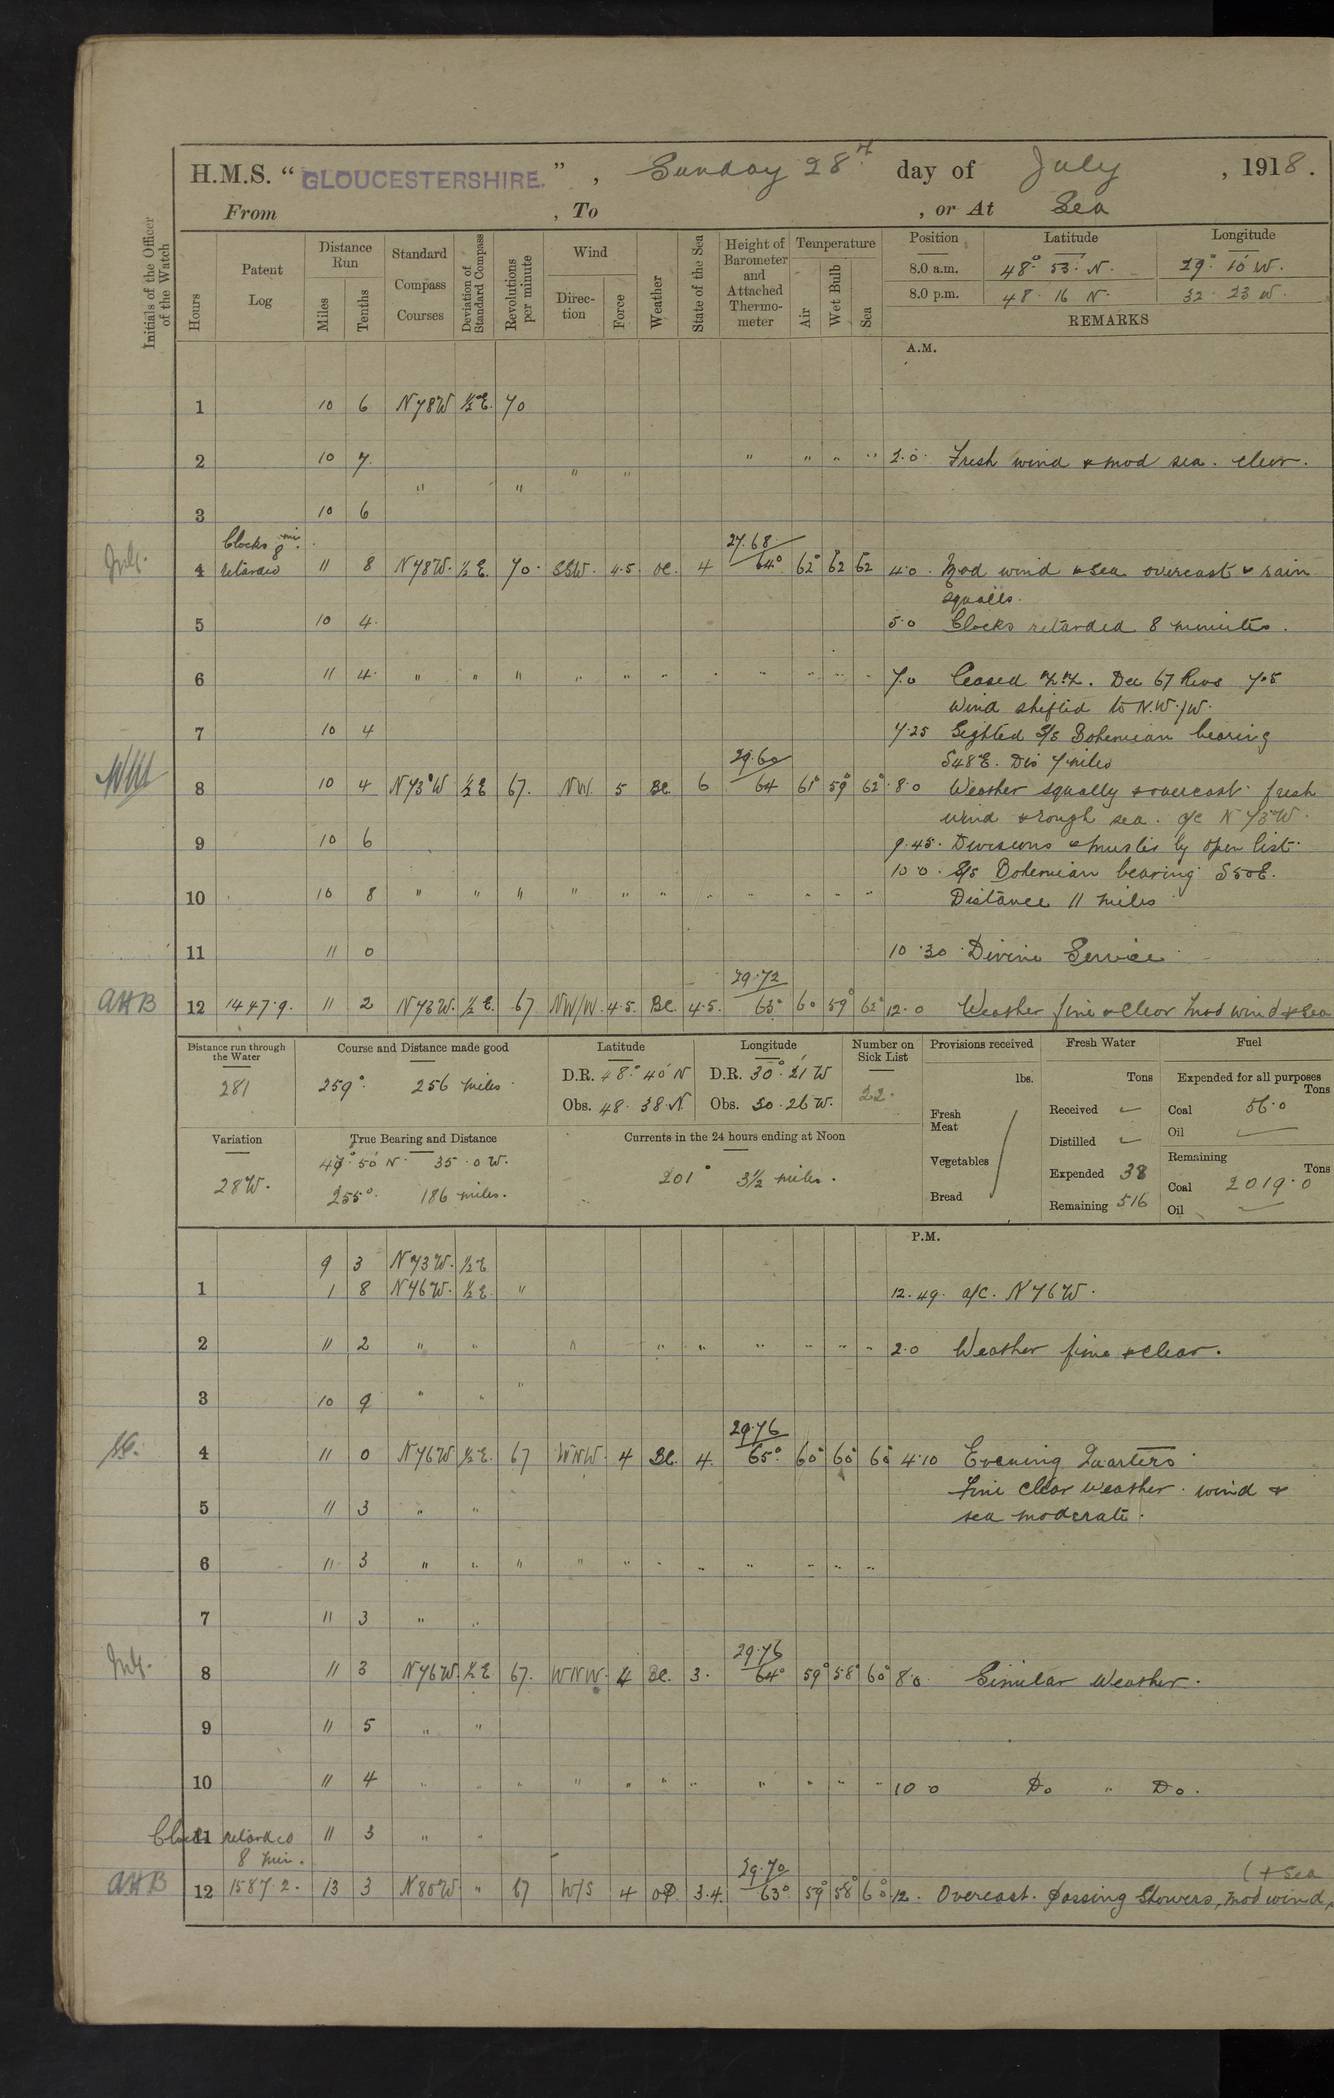 H.M.S. "GLOUCESTERSHIRE." , Sunday 28th day of July , 1918.
From , To , or At Sea
Initials of the Officer of the Watch
Hours
Patent Log
Distance Run
Miles
Tenths
Standard Compass Courses
Deviation of Standard Compass
Revolutions per minute
Wind
Direction
Force
Weather
State of the Sea
Height of Barometer and Attached Thermometer
Temperature
Air
Wet Bulb
Sea
Position Latitude Longitude
8.0 a.m. 48° 53' N. 29° 10' W.
8.0 p.m. 48 16 N. 32 23 W.
REMARKS
A.M.
1 10 6 N78W ½E. 70
2 10 7 " " " " " " " " 2.0 Fresh wind & mod sea. clear.
3 10 6
Clocks 8 min.
4 retarded 11 8 N78W. ½E. 70. SSW. 4.5. oc. 4 29.68 64° 62° 62 62 4.0. Mod wind & sea overcast & rain
squalls.
5 10 4 5.0 Clocks retarded 8 minutes.
6 11 4 " " " " " " " " " " " 7.0 Ceased Dec 67 Revs 7.5
wind shifted to N.W./W.
7 10 4 7.25 Sighted S/S Bohemian bearing
S48E. Dis 7 miles
8 10 4 N73°W ½E 67. NW. 5 Bc 6 29.60 64 61° 59° 62° 8.0 Weather squally & overcast. fresh
wind & rough sea. a/c N73°W.
9 10 6 9.45. Divisions & muster by open list.
10.0. S/S Bohemian bearing S50E.
10 10 8 " " " " " " " " " " " Distance 11 miles
11 11 0 10.30. Divine Service.
AHB 12 1447.9. 11 2 N73W. ½E. 67 NW/W. 4.5. Bc. 4.5. 29.72 63° 60 59° 62° 12.0 Weather fine & clear mod wind & sea
Distance run through the Water
281
Course and Distance made good
259° 256 miles.
Latitude
D.R. 48° 40' N
Obs. 48. 38. N.
Longitude
D.R. 30° 21' W
Obs. 30. 26 W.
Number on Sick List
22.
Provisions received
lbs.
Fresh Meat
Vegetables
Bread
Fresh Water
Tons
Received
Distilled
Expended 38
Remaining 516
Fuel
Expended for all purposes
Tons
Coal 56.0
Oil
Remaining
Tons
Coal 2019.0
Oil
Variation
28W.
True Bearing and Distance
47° 50' N. 35.0 W.
255° 186 miles.
Currents in the 24 hours ending at Noon
201° 3½ miles.
P.M.
9 3 N73W. ½E
1 1 8 N76W. ½E. " 12.49. a/c. N76W.
2 11 2 " " " " " " " " " 2.0 Weather fine & clear.
3 10 9 " " "
4 11 0 N76W ½E. 67 WNW. 4 Bc. 4. 29.76 65° 60° 60 60 4.10 Evening Quarters.
Fine clear weather. wind &
5 11 3 " " sea moderate.
6 11 3 " " " " " " " " " " "
7 11 3 " "
8 11 3 N76W. ½E. 67. WNW. 4 Bc. 3. 29.76 64° 59° 58° 60° 8.0. Similar weather.
9 11 5 " "
10 11 4 " " " " " " " " " " " 10 0 Do " Do.
Clocks 11 retarded 11 3 " "
8 min.
(& sea
AHB 12 1587.2. 13 3 N80W " 67 W/S 4 op. 3.4. 29.70 63° 59° 58° 60 12. Overcast. passing showers, mod wind,